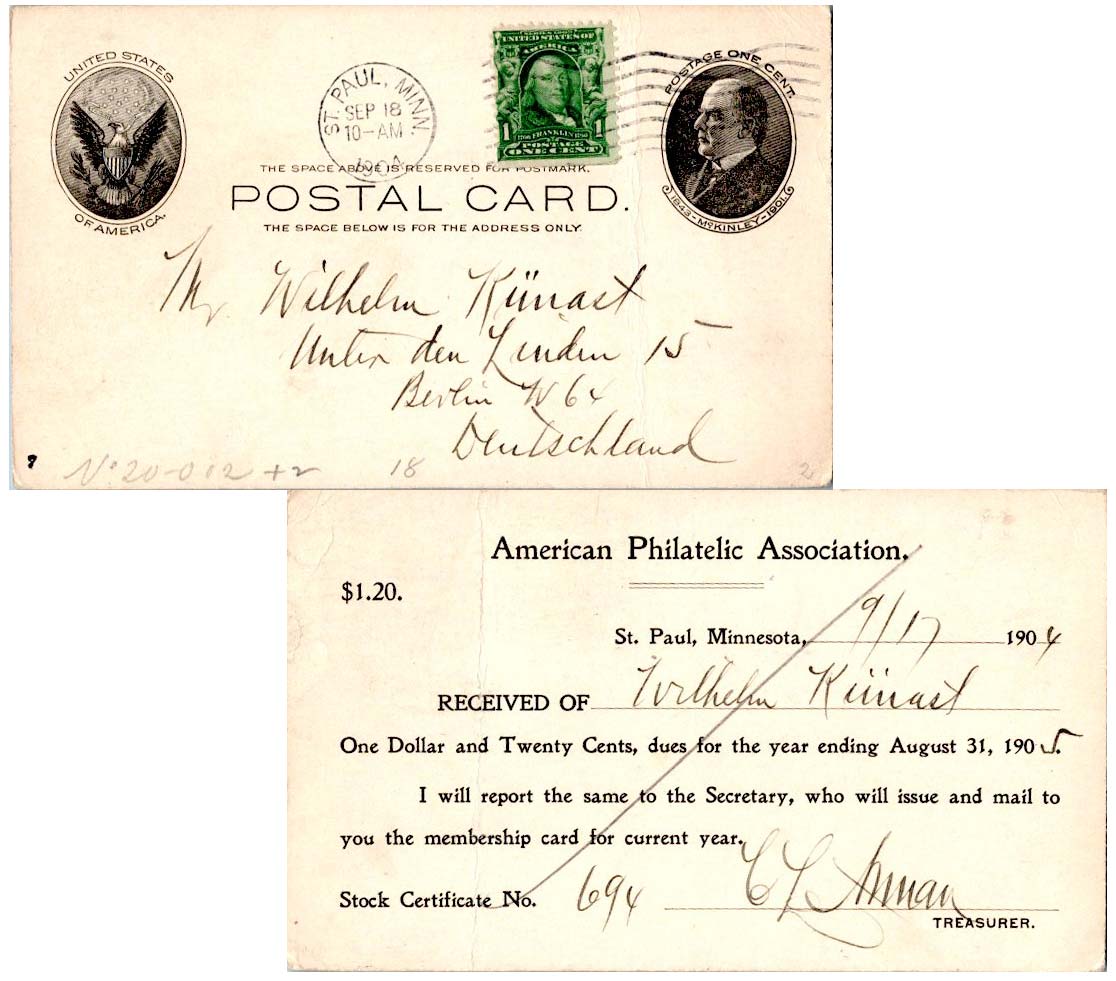 UNITED STATES
OF AMERICA.
ST. PAUL, MINN.
SEP 18
10-AM
1904
SERIES 1902
UNITED STATES OF
AMERICA
1706 FRANKLIN 1790
POSTAGE
1 ONE CENT 1
POSTAGE ONE CENT.
1843-McKINLEY-1901.
THE SPACE ABOVE IS RESERVED FOR POSTMARK.
POSTAL CARD.
THE SPACE BELOW IS FOR THE ADDRESS ONLY.
Mr Wilhelm Künast
Unter den Linden 15
Berlin W 64
Deutschland
No 20-012 +2 18
American Philatelic Association.
$1.20.
St. Paul, Minnesota, 9/17 1904
RECEIVED OF Wilhelm Künast
One Dollar and Twenty Cents, dues for the year ending August 31, 1905.
I will report the same to the Secretary, who will issue and mail to
you the membership card for current year.
Stock Certificate No. 694
TREASURER.